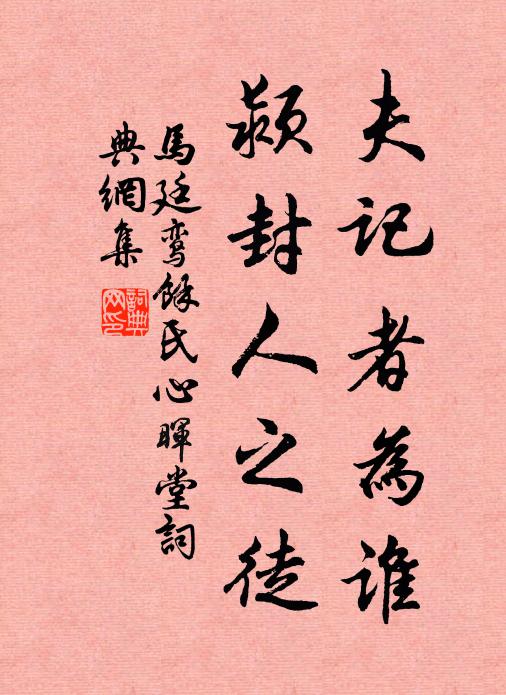 夫记者為谁
颍封人之徒
馬廷鸾餘氏心暉堂詞
典網集
詞典
网印